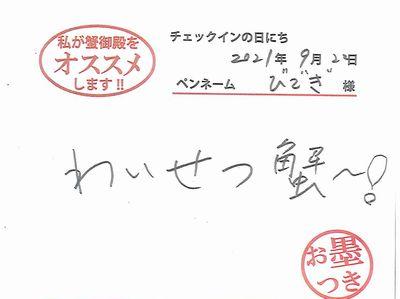 私が蟹御殿を
オススメ
します!!
チェックインの日にち
2021年9月24日
ペンネーム びでぎ 様
わいせつ蟹〜!
お墨
つき